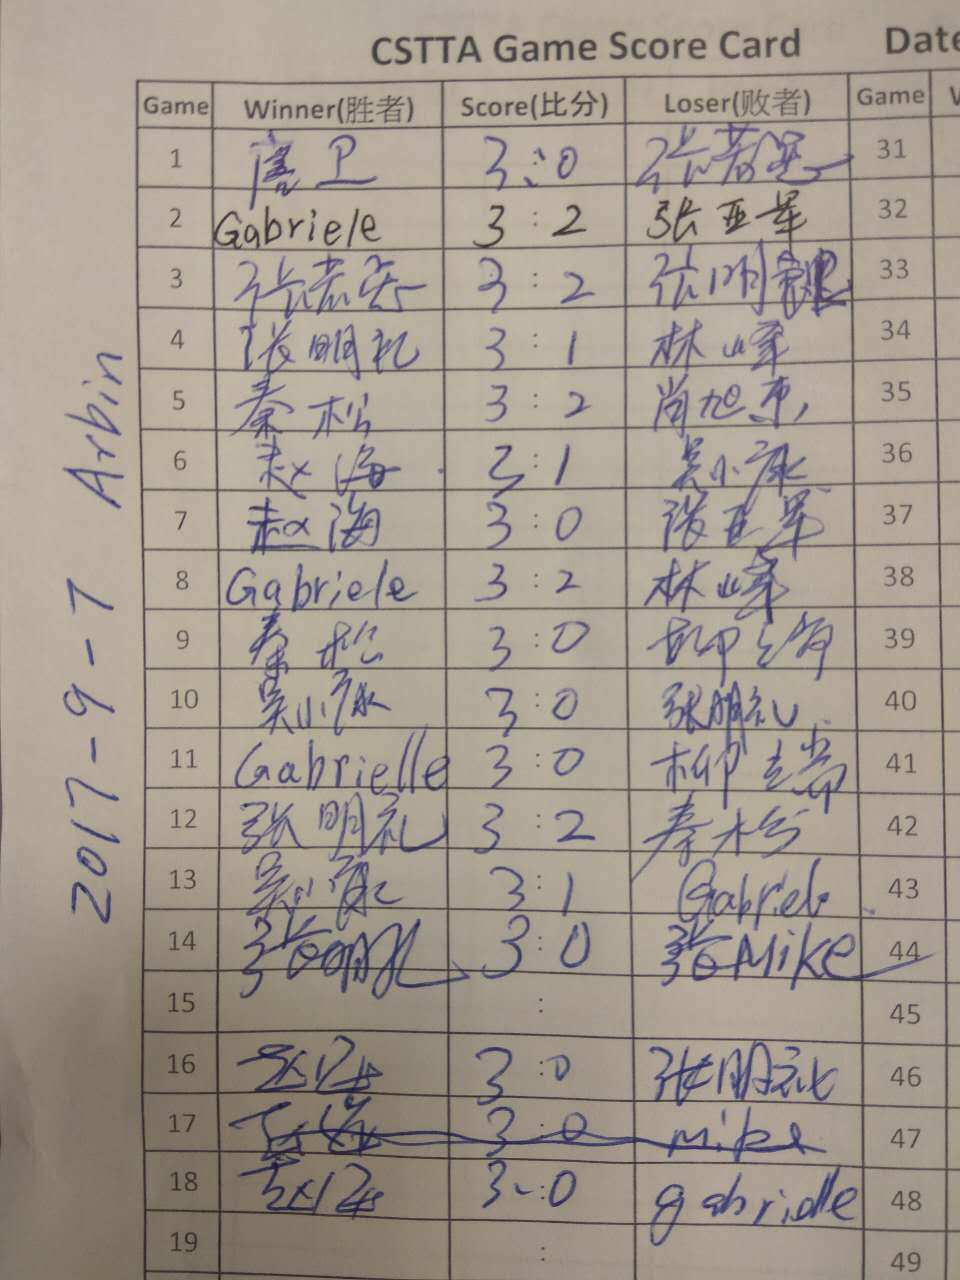 CSTTA Game Score Card Date
Game Winner(胜者) Score(比分) Loser(败者) Game
1 唐卫 3:0 张若愚 31
2 Gabriele 3:2 张亚军 32
3 张若愚 3:2 张明礼 33
4 张明礼 3:1 林峰 34
5 秦松 3:2 尚旭东 35
6 赵海 3:1 吴小康 36
7 赵海 3:0 张亚军 37
8 Gabriele 3:2 林峰 38
9 秦松 3:0 柳 39
10 吴小康 3:0 张明礼 40
11 Gabrielle 3:0 柳 41
12 张明礼 3:2 秦松 42
13 吴小康 3:1 Gabriel 43
14 张明礼 3:0 张Mike 44
15 : 45
16 3:0 张明礼 46
17 3:0 Mike 47
18 3:0 gabrielle 48
19 : 49
2017-9-7 Arbin